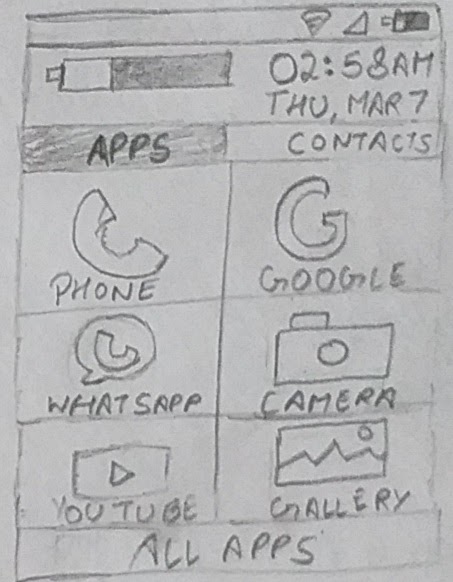 02:58AM
THU, MAR 7
APPS
CONTACTS
PHONE
GOOGLE
WHATSAPP
CAMERA
YOUTUBE
GALLERY
ALL APPS